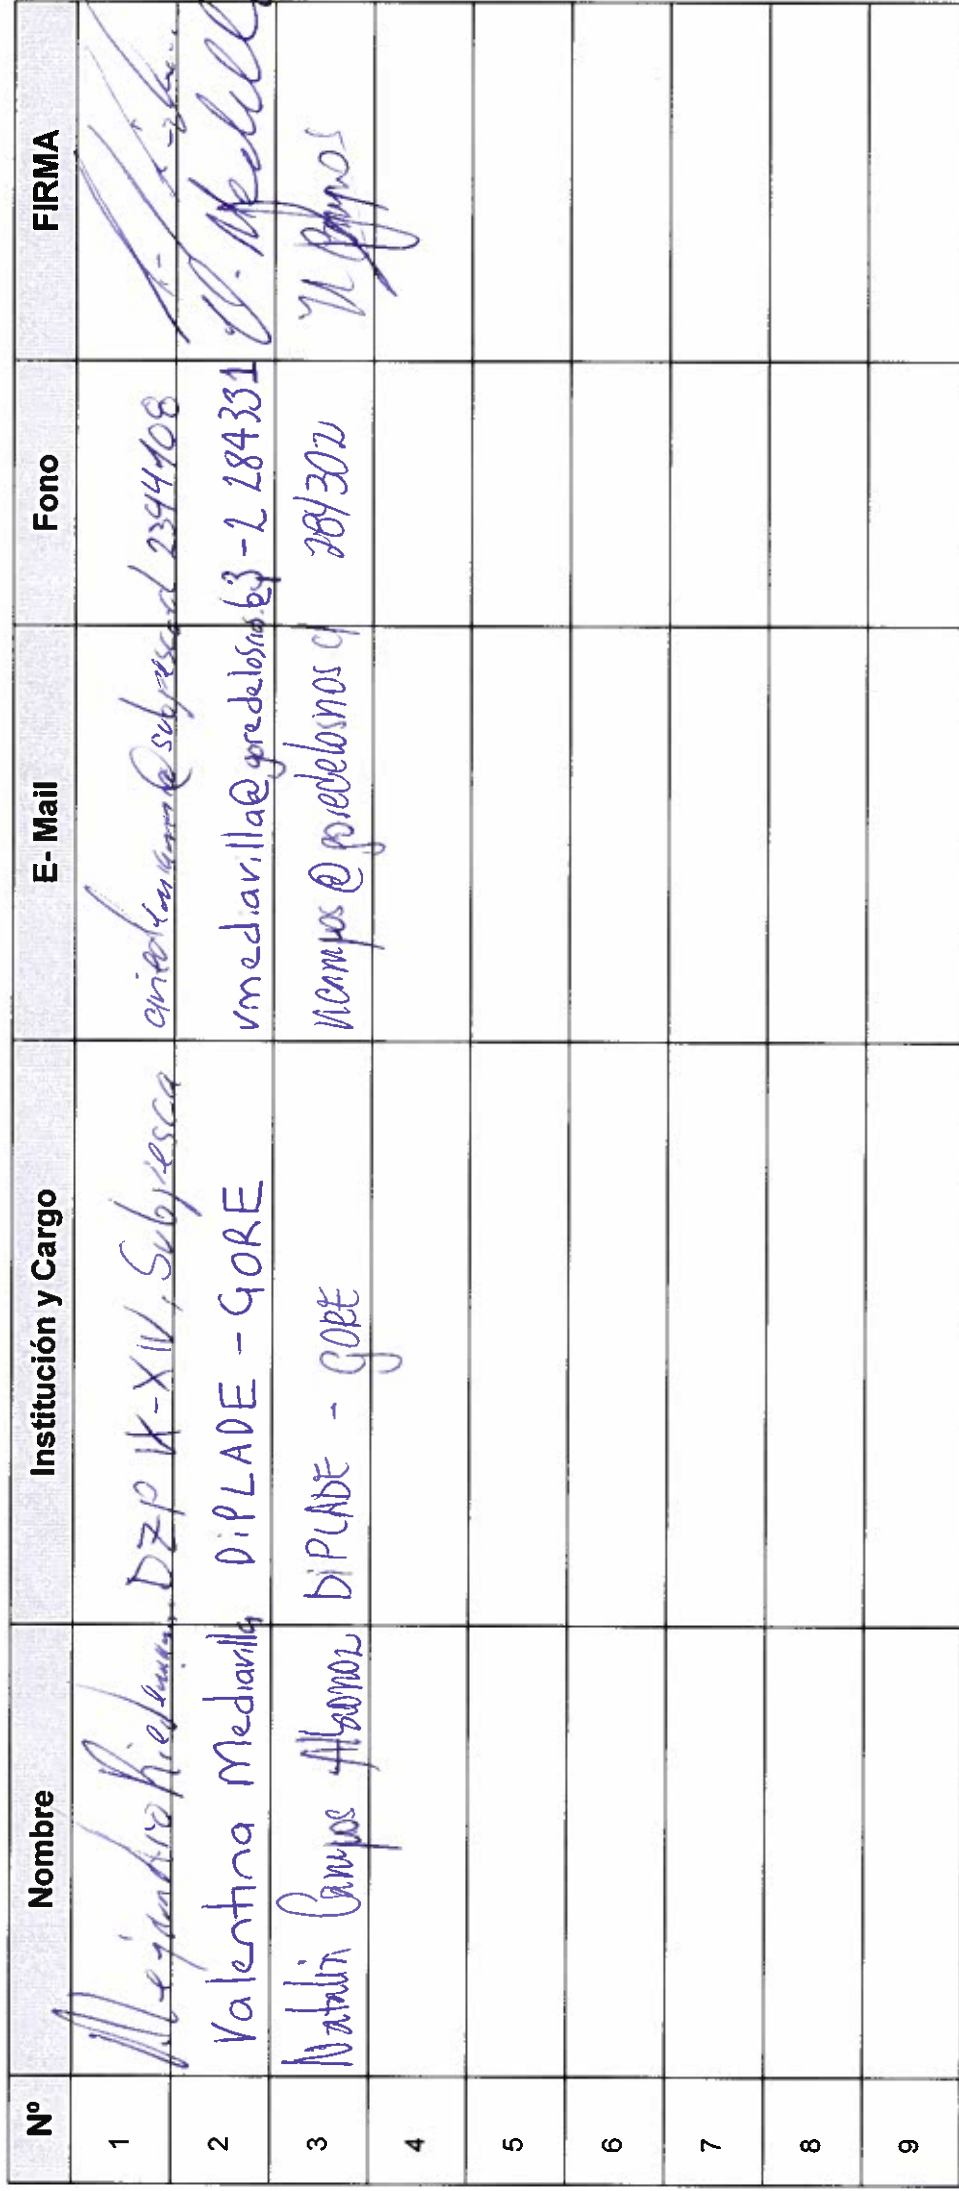 Nº Nombre Institución y Cargo E- Mail Fono FIRMA
1 Alejandro Riedemann DZP IX-XIV, Subpesca 2344108
2 Valentina Mediavilla DiPLADE - GORE vmediavilla@goredelosrios. 63-2 284331 V. Mediavilla
3 Natalia Campos Albornoz DiPLADE - GORE ncampos@goredelosrios cl 284302 N Campos
4
5
6
7
8
9